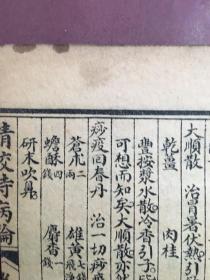 大順散　治冒暑伏熱引
乾薑　肉桂
豐按漿水散冷香引子
可想而知矣大順散亦
痧疫回春丹　治一切痧疫
蒼朮二兩　雄黃飛
蟾酥四錢　麝香
研末吹鼻
時病論